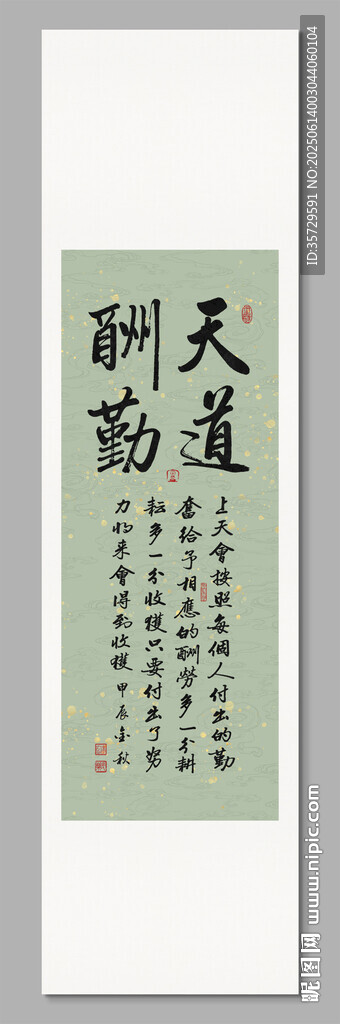 天道
酬勤
上天會按照每個人付出的勤
奮給予相應的酬勞多一分耕
耘多一分收獲只要付出了努
力將来會得到收獲甲辰金秋
ID:35729591 NO:20250614003044060104
昵图网 www.nipic.com